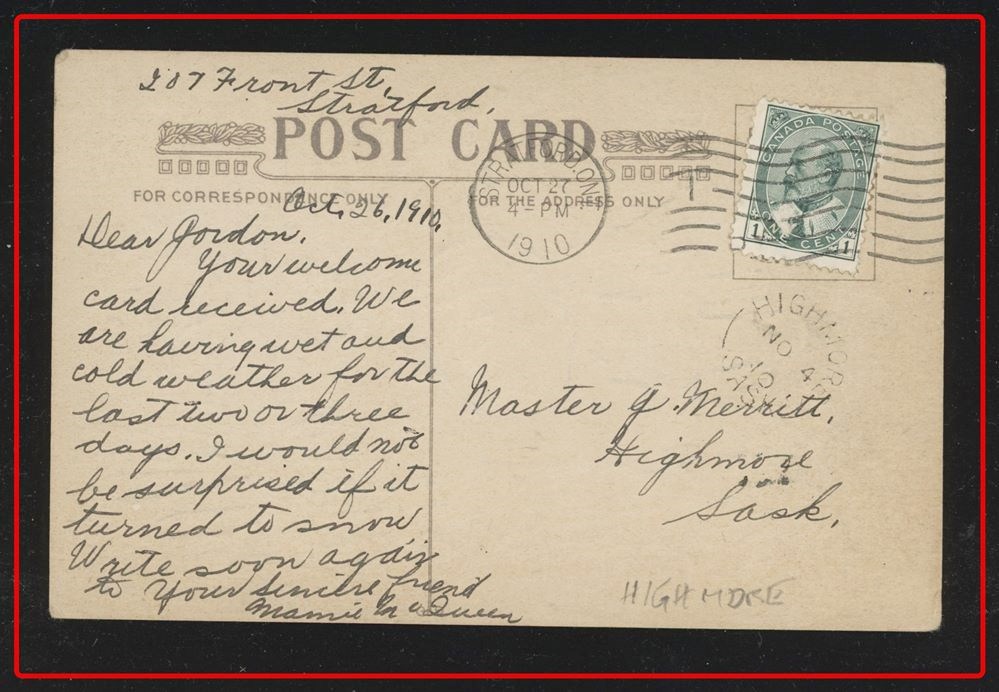 207 Front St,
Stratford,
POST CARD
FOR CORRESPONDENCE ONLY
FOR THE ADDRESS ONLY
Oct. 26, 1910,
Dear Gordon,
Your welcome
card received. We
are having wet and
cold weather for the
last two or three
days. I would not
be surprised if it
turned to snow
Write soon again
to Your sincere friend
Mamie McQueen
STRATFORD, ONT
OCT 27
4-PM
1910
1
CANADA POSTAGE
1 ONE CENT 1
HIGHMORE
NO 4
10
SASK
Master G. Merritt,
Highmore
Sask,
HIGHMORE